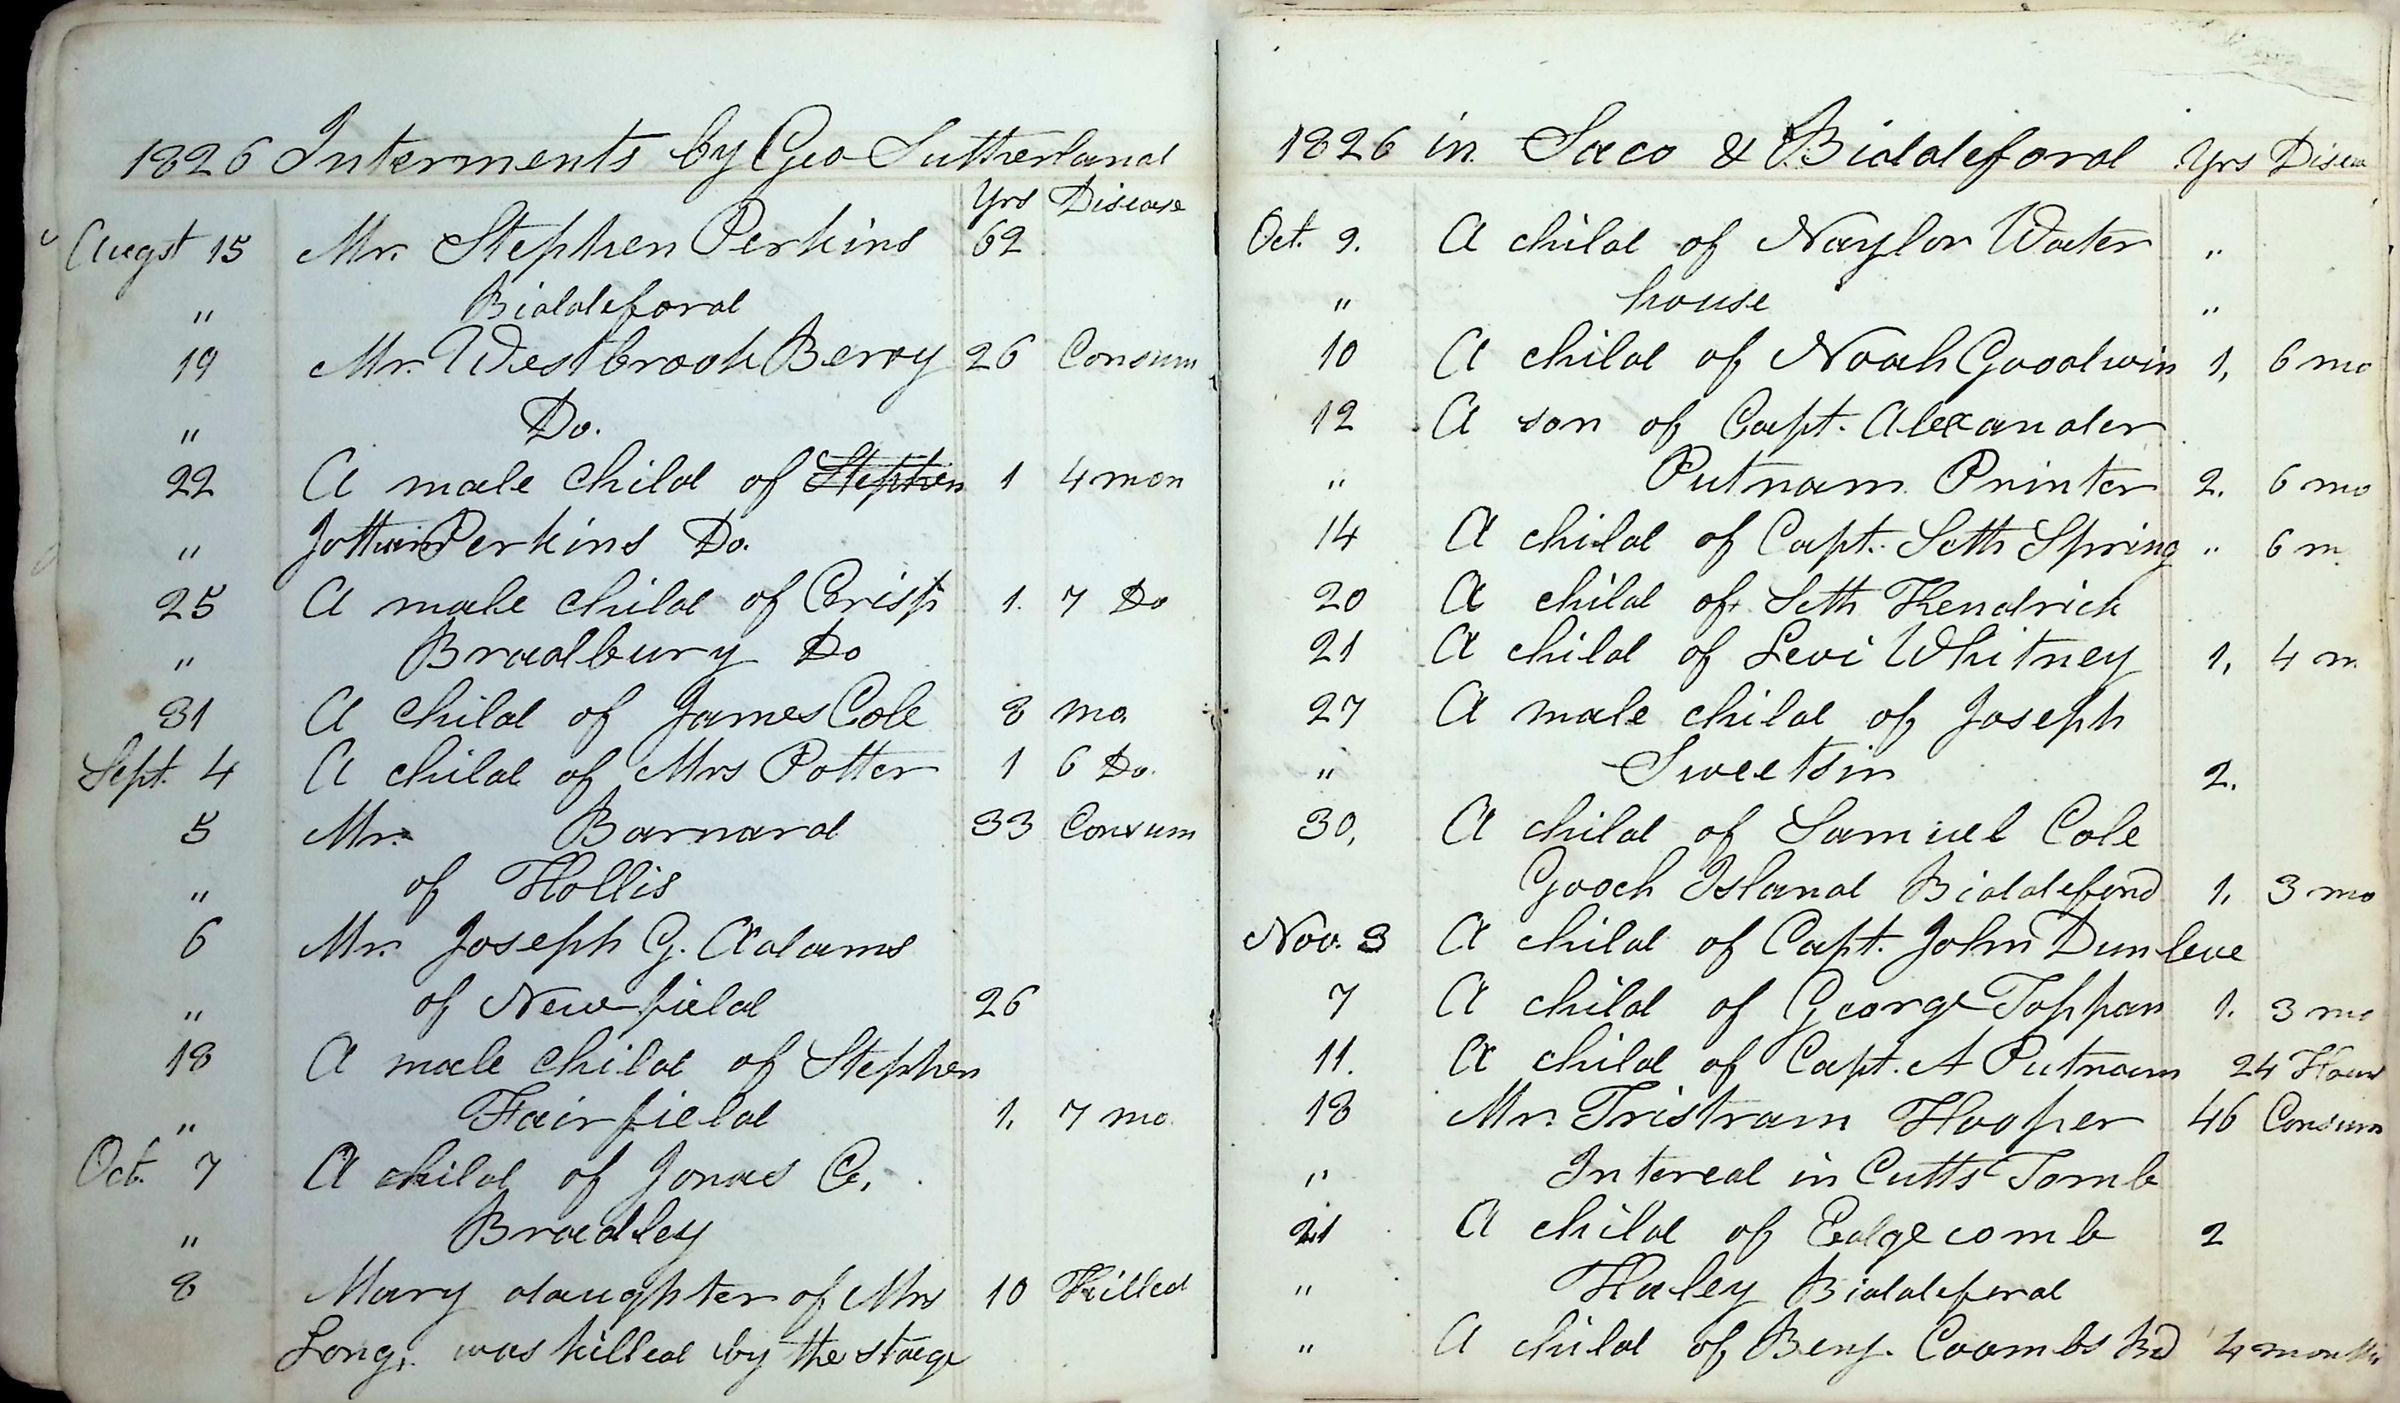 1826 Interments by Geo Sutherland
Yrs Disease
Augst 15 Mr. Stephen Perkins 62
" Biddeford
19 Mr. Westbrook Berry 26 Consum
" Do.
22 A male child of Stephen 1 4 mon
" Perkins Do.
25 A male child of Crisp 1. 7 Do
" Bradbury Do
31 A child of James Cole 8 mo.
Sept. 4 A child of Mrs Potter 1 6 Do.
5 Mr. Barnard 33 Consum
" of Hollis
6 Mr. Joseph G. Adams
" of Newfield 26
18 A male child of Stephen
" Fairfield 1, 7 mo
Oct. 7 A child of Jonas C.
" Bradley
8 Mary daughter of Mrs 10 Killed
Long, was killed by the stage
1826 in Saco & Biddeford Yrs Disea
Oct. 9. A child of Naylor Water "
" house "
10 A child of Noah Goodwin 1, 6 mo
12 A son of Capt. Alexander
" Putnam Printer 2. 6 mo
14 A child of Capt. Seth Spring " 6 m
20 A child of Seth Kendrick
21 A child of Levi Whitney 1, 4 m
27 A male child of Joseph
" Sweetsin 2.
30, A child of Samuel Cole
Gooch Island Biddeford 1, 3 mo
Nov. 3 A child of Capt. John Dunleve
7 A child of George Toppan 1. 3 mo
11. A child of Capt. A Putnam 24 Hours
18 Mr. Tristram Hooper 46 Consum
" Intered in Cutts Tomb
21 A child of Edgecomb 2
" Haley Biddeford
" A child of Benj. Coombs Bd 4 months